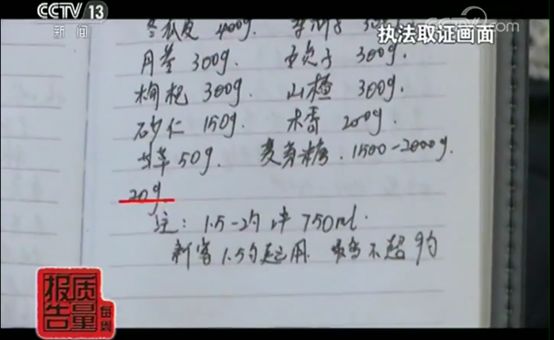 CCTV 13
新闻
CCTV.com
执法取证画面
冬瓜皮 400g.
月苓 300g. 女贞子 300g.
枸杞 300g. 山楂 300g.
砂仁 150g. 木香 200g.
甘草 50g. 麦芽糖. 1500-2000g.
20g
注: 1.5-2勺冲 750ml.
新客 1.5勺起用. 最多不超
每周
质量
报告